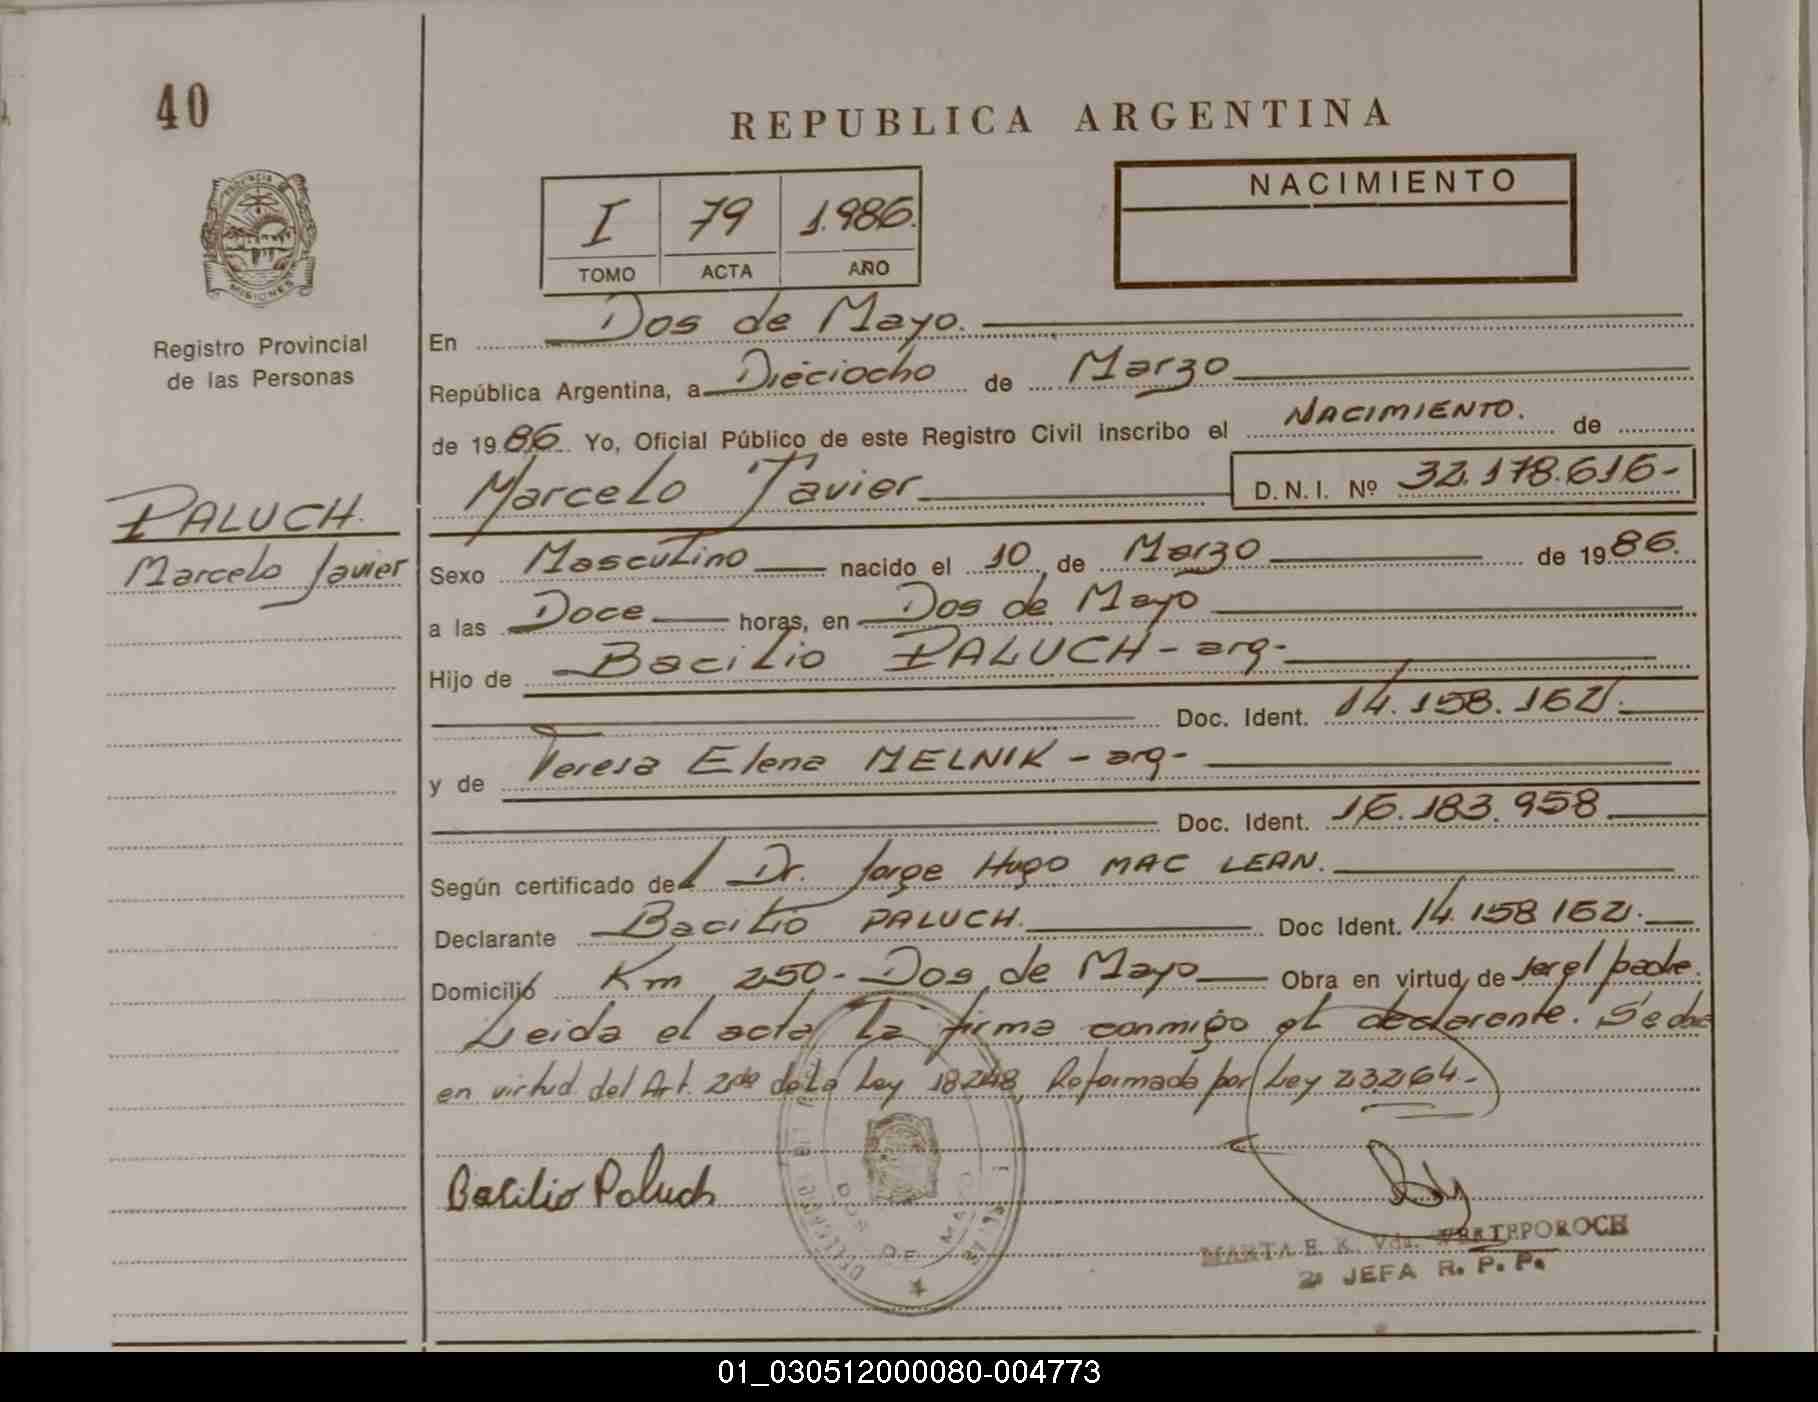 40
REPUBLICA ARGENTINA
NACIMIENTO
I 79 1.986.
TOMO ACTA AÑO
PROVINCIA DE
MISIONES
Registro Provincial
de las Personas
En Dos de Mayo.
República Argentina, a Dieciocho de Marzo
de 1986. Yo, Oficial Público de este Registro Civil inscribo el NACIMIENTO. de
Marcelo Javier D.N.I. Nº 32.178.616-
PALUCH.
Marcelo Javier
Sexo Masculino nacido el 10 de Marzo de 1986.
a las Doce horas, en Dos de Mayo
Hijo de Bacilio PALUCH - arg-
Doc. Ident. 14.158.162.
y de Teresa Elena MELNIK - arg-
Doc. Ident. 16.183.958
Según certificado del Dr. Jorge Hugo MAC LEAN.
Declarante Bacilio PALUCH. Doc Ident. 14.158 162.
Domicilio Km 250- Dos de Mayo Obra en virtud de ser el padre.
Leida el acta la firma conmigo el declarante. Se dae
en virtud del Art. 2do de la Ley 18248, Reformada por Ley 23264.-
Bacilio Paluch
DOS DE MAYO
MARTA E. K. Vda.
2ª JEFA R. P. P.
01_030512000080-004773